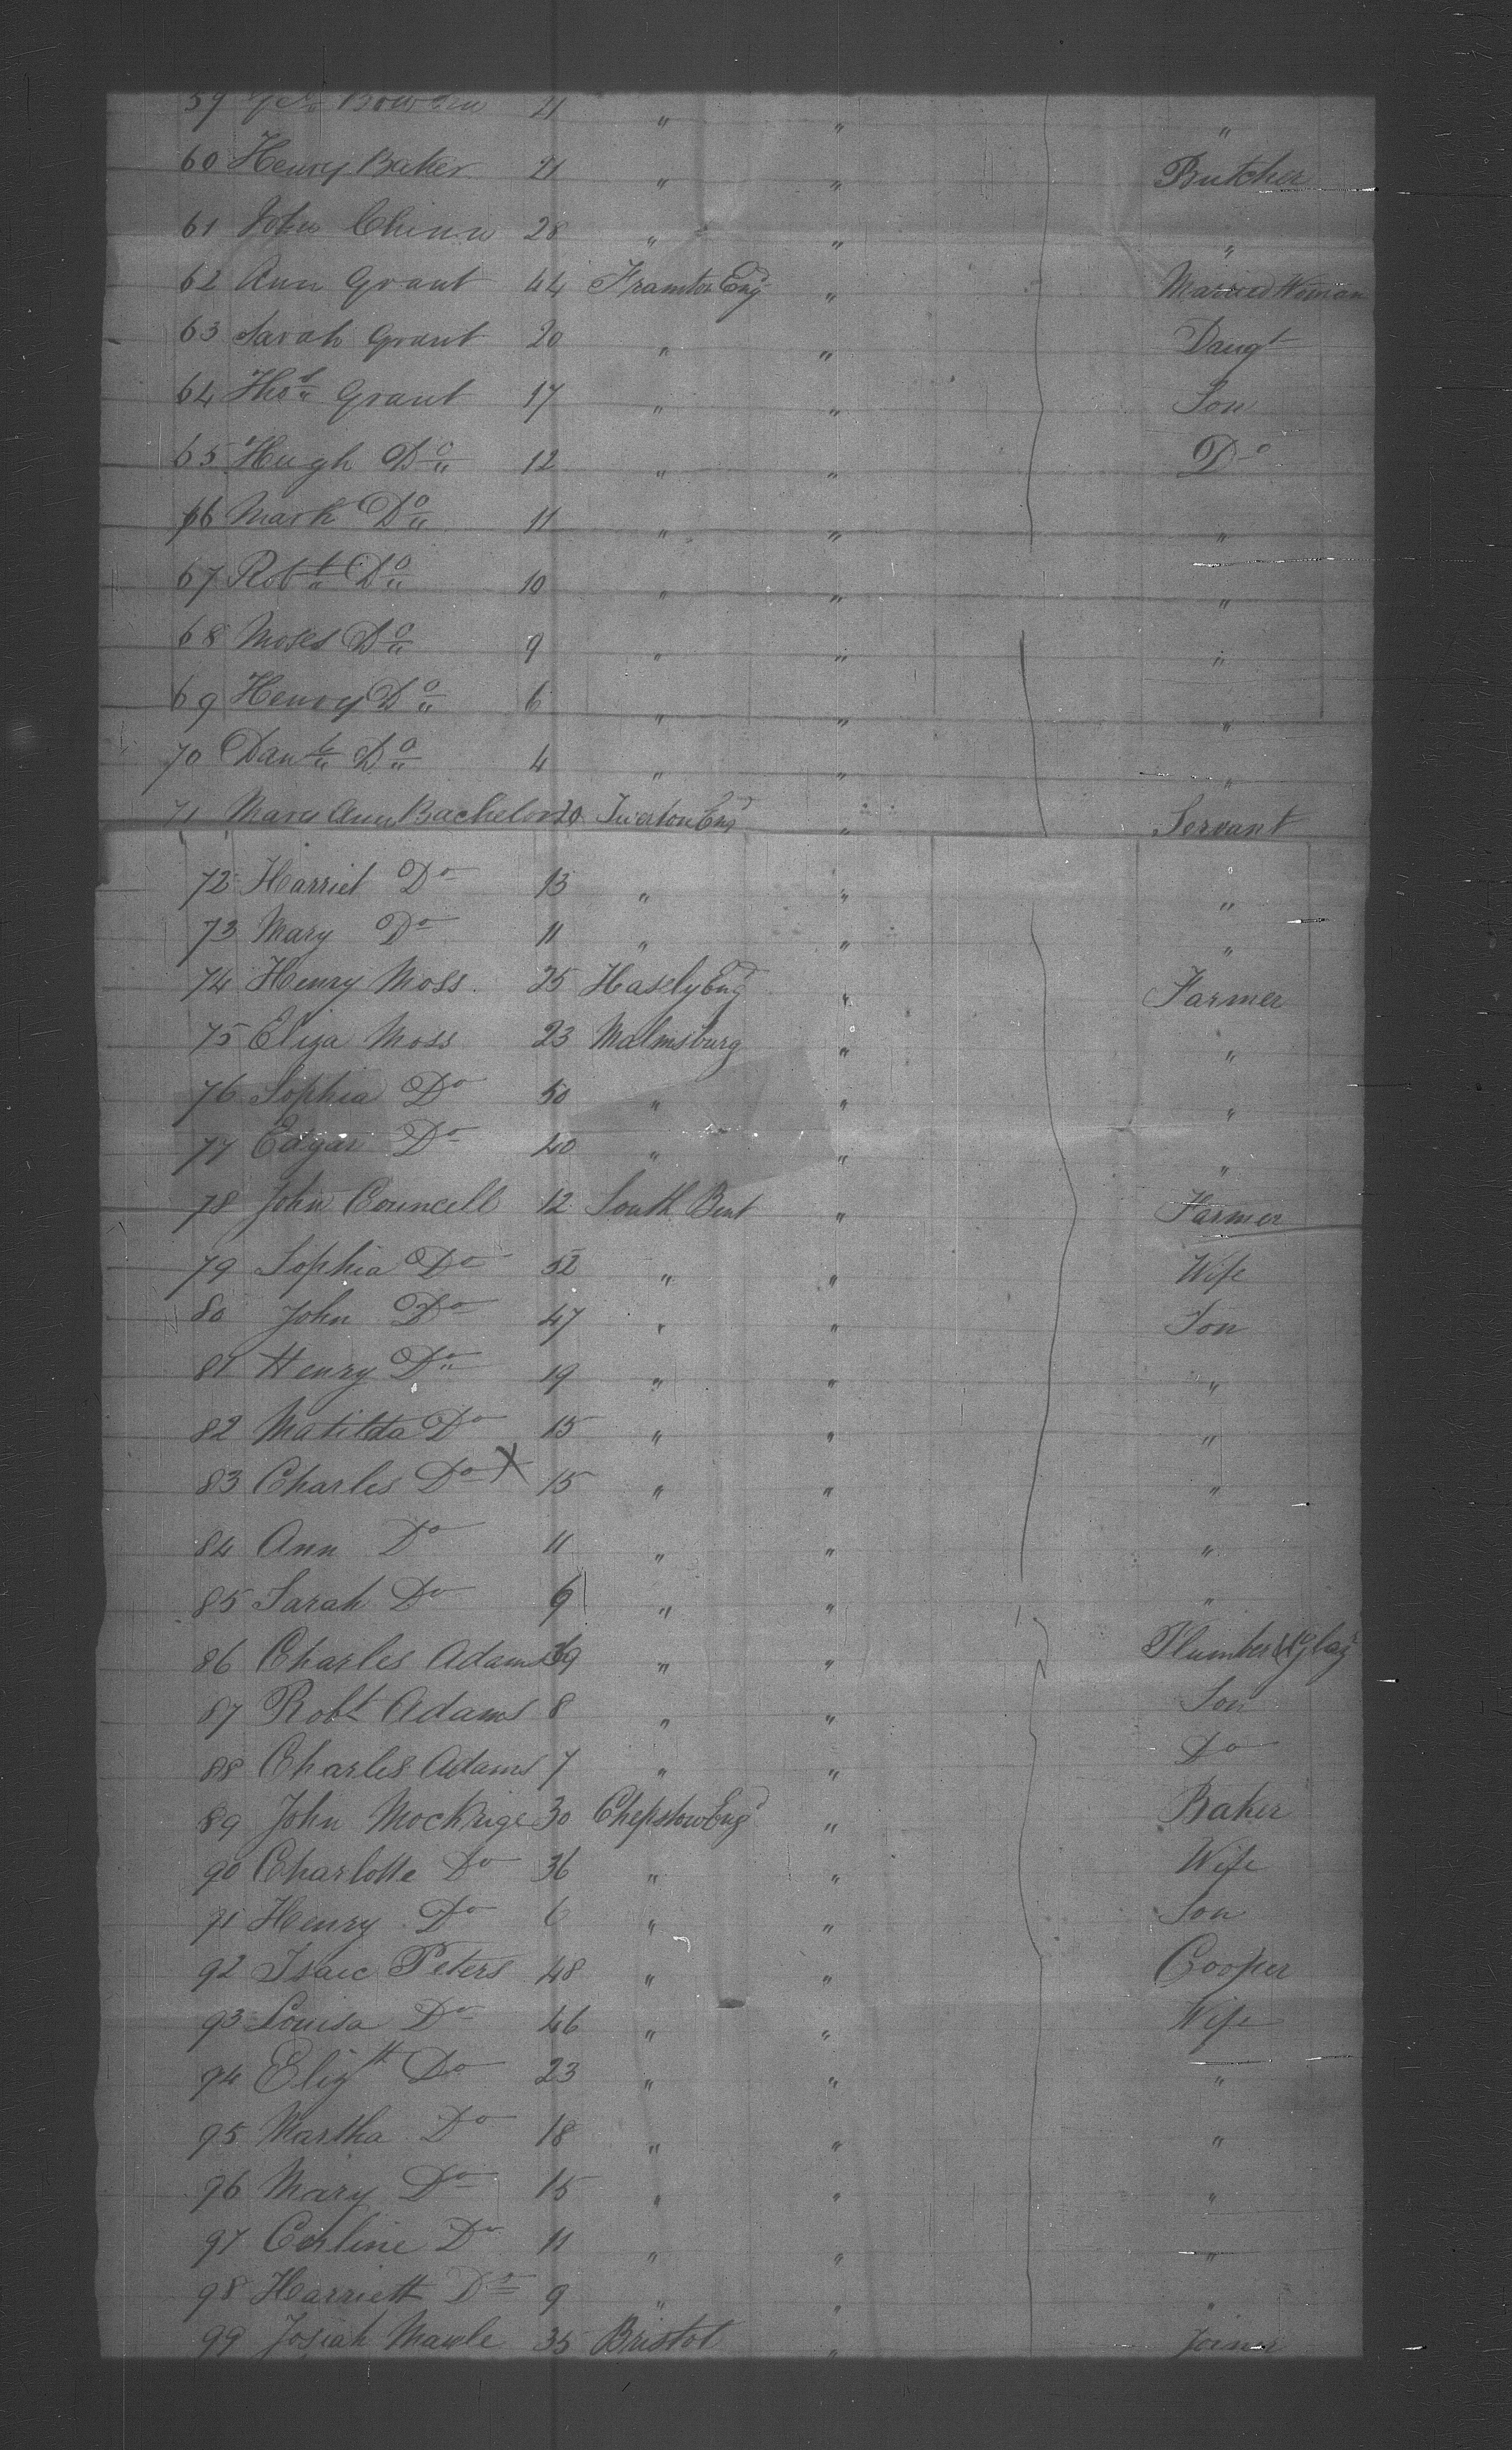 59 Geo Bowden 21 " " "
60 Henry Baker 21 " " Butcher
61 John Chinn 28 " " "
62 Ann Grant 44 Framton Engd " Married Woman
63 Sarah Grant 20 " " Daugt
64 Thos Grant 17 " " Son
65 Hugh Do 12 " " Do
66 Mark Do 11 " " "
67 Robt Do 10 " " "
68 Moses Do 9 " " "
69 Henry Do 6 " " "
70 Danl Do 4 " " "
71 Mary Ann Bachelor 20 Twerton Engd " Servant
72 Harriet Do 13 " " "
73 Mary Do 11 " " "
74 Henry Moss 25 Hasely Engd " Farmer
75 Eliza Moss 23 Malmsburg " "
76 Sophia Do 50 " " "
77 Edgar Do 40 " " "
78 John Councell 12 South Bent " Farmer
79 Sophia Do 52 " " Wife
80 John Do 47 " " Son
81 Henry Do 19 " " "
82 Matilda Do 15 " " "
83 Charles Do X 15 " " "
84 Ann Do 11 " " "
85 Sarah Do 9 " " "
86 Charles Adams 39 " " Plumber &
87 Robt Adams 8 " " Son
88 Charles Adams 7 " " Do
89 John Mockrige 30 Chepstow Engd " Baker
90 Charlotte Do 36 " " Wife
91 Henry Do 6 " " Son
92 Isaic Peters 48 " " Cooper
93 Louisa Do 46 " " Wife
94 Elizth Do 23 " " "
95 Martha Do 18 " " "
96 Mary Do 15 " " "
97 Carline Do 11 " " "
98 Harriett Do 9 " " "
99 Josiah Maule 35 Bristol " Joiner